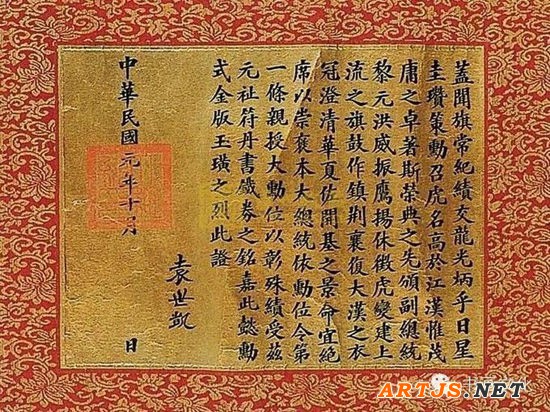 蓋聞旗常紀績交龍光炳乎日星
圭瓚策勳召虎名高於江漢惟茂
庸之卓著斯榮典之先頒副總統
黎元洪威振鷹揚休徵虎變建上
流之旗鼓作鎮荊襄復大漢之衣
冠澄清華夏佐開基之景命宜絕
席以崇褒本大總統依勳位令第
一條親授大勳位以彰殊績受茲
元祉符丹書鐵券之銘嘉此懿勳
式金版玉璜之烈此證
袁世凱
中華民國元年十月 日
ARTJS.NET